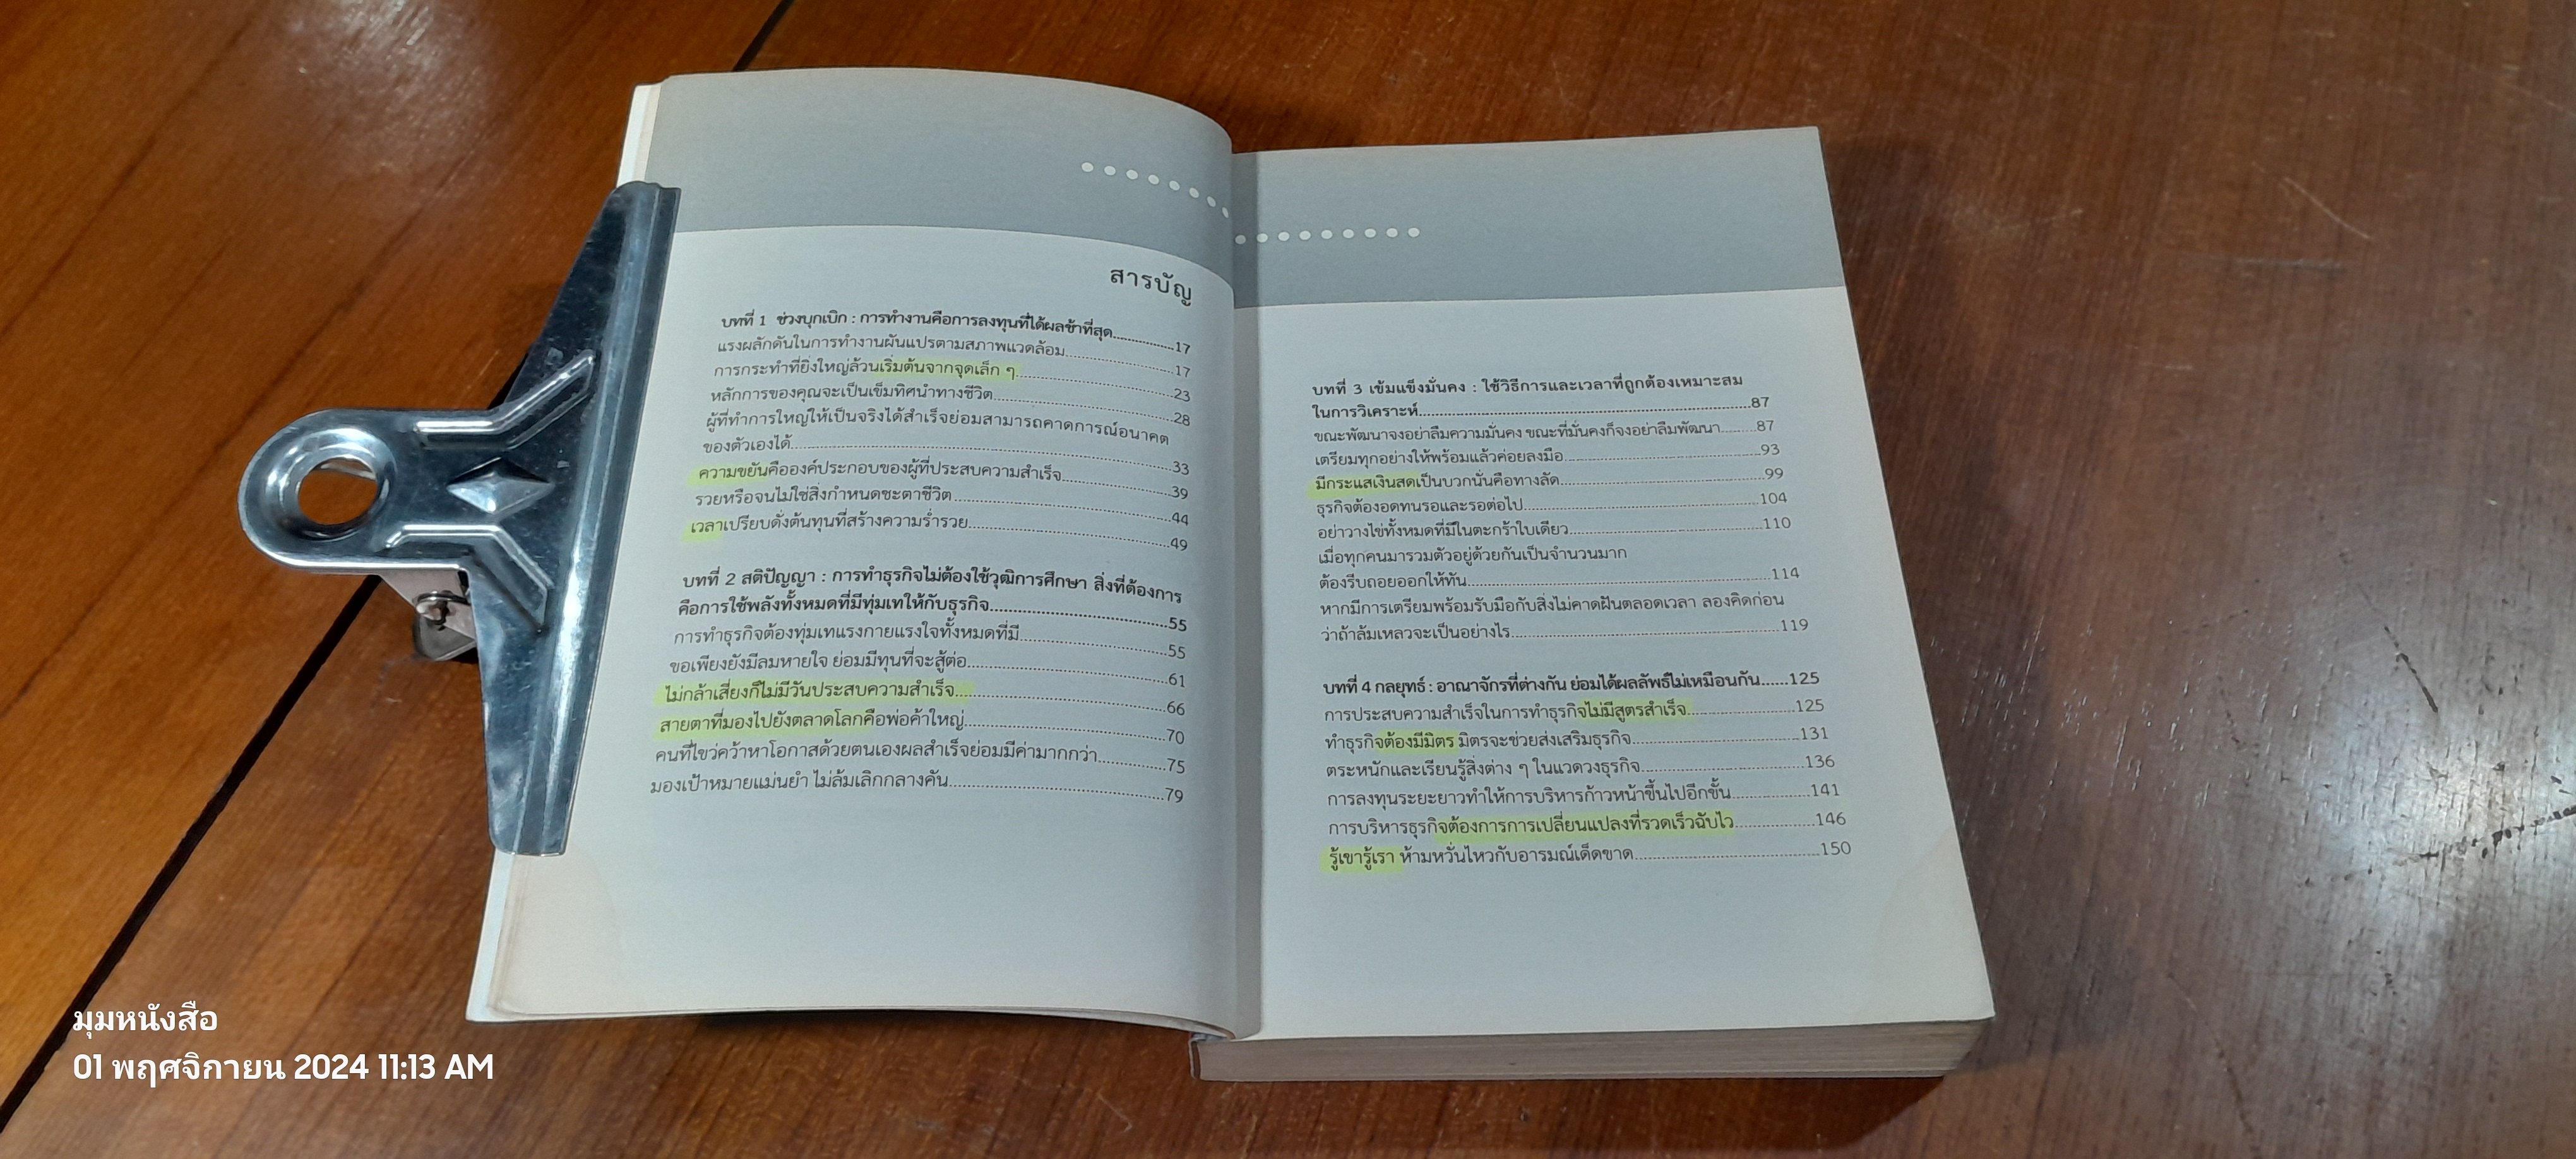 สารบัญ
บทที่ 1 ช่วงบุกเบิก : การทำงานคือการลงทุนที่ได้ผลช้าที่สุด....................17
แรงผลักดันในการทำงานผันแปรตามสภาพแวดล้อม....................17
การกระทำที่ยิ่งใหญ่ล้วนเริ่มต้นจากจุดเล็ก ๆ....................23
หลักการของคุณจะเป็นเข็มทิศนำทางชีวิต....................28
ผู้ที่ทำการใหญ่ให้เป็นจริงได้สำเร็จย่อมสามารถคาดการณ์อนาคต
ของตัวเองได้....................33
ความขยันคือองค์ประกอบของผู้ที่ประสบความสำเร็จ....................39
รวยหรือจนไม่ใช่สิ่งกำหนดชะตาชีวิต....................44
เวลาเปรียบดั่งต้นทุนที่สร้างความร่ำรวย....................49
บทที่ 2 สติปัญญา : การทำธุรกิจไม่ต้องใช้วุฒิการศึกษา สิ่งที่ต้องการ
คือการใช้พลังทั้งหมดที่มีทุ่มเทให้กับธุรกิจ....................55
การทำธุรกิจต้องทุ่มเทแรงกายแรงใจทั้งหมดที่มี....................55
ขอเพียงยังมีลมหายใจ ย่อมมีทุนที่จะสู้ต่อ....................61
ไม่กล้าเสี่ยงก็ไม่มีวันประสบความสำเร็จ....................66
สายตาที่มองไปยังตลาดโลกคือพ่อค้าใหญ่....................70
คนที่ไขว่คว้าหาโอกาสด้วยตนเองผลสำเร็จย่อมมีค่ามากกว่า....................75
มองเป้าหมายแม่นยำ ไม่ล้มเลิกกลางคัน....................79
บทที่ 3 เข้มแข็งมั่นคง : ใช้วิธีการและเวลาที่ถูกต้องเหมาะสม
ในการวิเคราะห์....................87
ขณะพัฒนาจงอย่าลืมความมั่นคง ขณะที่มั่นคงก็จงอย่าลืมพัฒนา.........87
เตรียมทุกอย่างให้พร้อมแล้วค่อยลงมือ....................93
มีกระแสเงินสดเป็นบวกนั่นคือทางลัด....................99
ธุรกิจต้องอดทนรอและรอต่อไป....................104
อย่าวางไข่ทั้งหมดที่มีในตะกร้าใบเดียว....................110
เมื่อทุกคนมารวมตัวอยู่ด้วยกันเป็นจำนวนมาก
ต้องรีบถอยออกให้ทัน....................114
หากมีการเตรียมพร้อมรับมือกับสิ่งไม่คาดฝันตลอดเวลา ลองคิดก่อน
ว่าถ้าล้มเหลวจะเป็นอย่างไร....................119
บทที่ 4 กลยุทธ์ : อาณาจักรที่ต่างกัน ย่อมได้ผลลัพธ์ไม่เหมือนกัน......125
การประสบความสำเร็จในการทำธุรกิจไม่มีสูตรสำเร็จ....................125
ทำธุรกิจต้องมีมิตร มิตรจะช่วยส่งเสริมธุรกิจ....................131
ตระหนักและเรียนรู้สิ่งต่าง ๆ ในแวดวงธุรกิจ....................136
การลงทุนระยะยาวทำให้การบริหารก้าวหน้าขึ้นไปอีกขั้น....................141
การบริหารธุรกิจต้องการการเปลี่ยนแปลงที่รวดเร็วฉับไว....................146
รู้เขารู้เรา ห้ามหวั่นไหวกับอารมณ์เด็ดขาด....................150
มุมหนังสือ
01 พฤศจิกายน 2024 11:13 AM